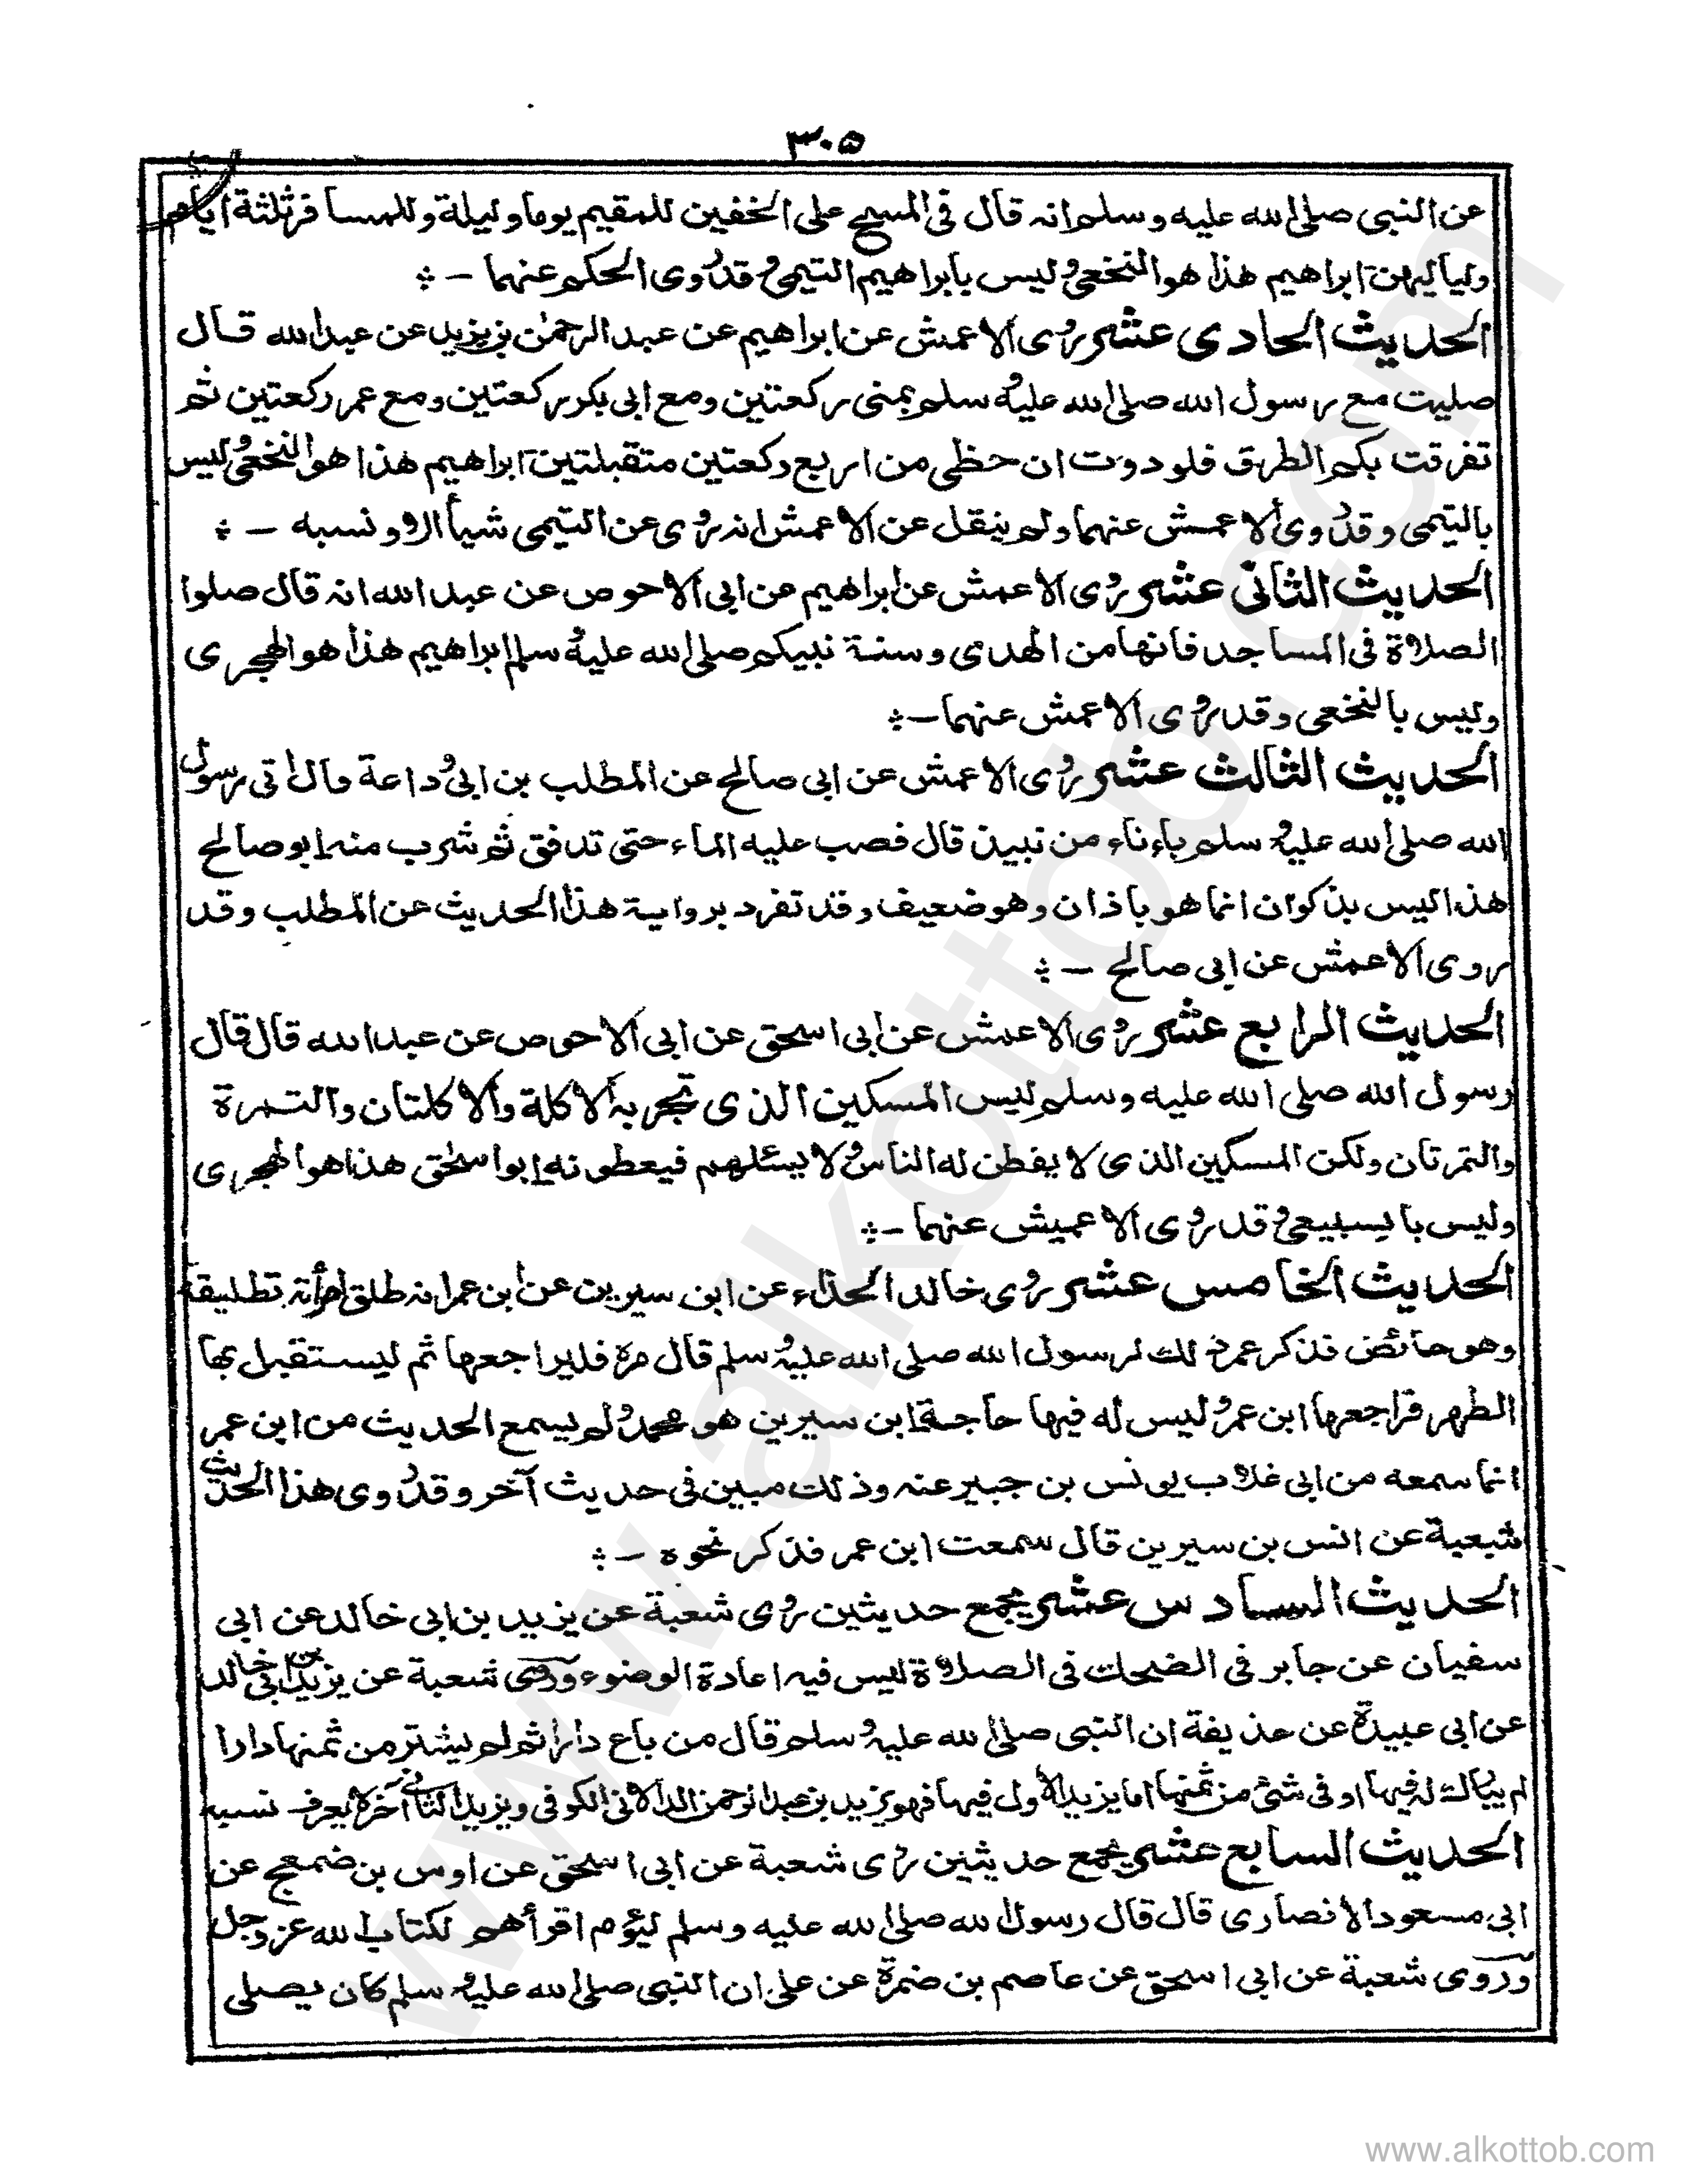 ٣٠٥
عن النبى صلى الله عليه وسلم انه قال فى المسح على الخفين للمقيم يوما وليلة وللمسافر ثلثة ايام
ولياليهن ابراهيم هذا هو النخعى وليس بابراهيم التيمى وقد روى الحكم عنهما - ؞
الحديث الحادى عشر روى الاعمش عن ابراهيم عن عبد الرحمن بن يزيد عن عبد الله قال
صليت مع رسول الله صلى الله عليه وسلم بمنى ركعتين ومع ابى بكر ركعتين ومع عمر ركعتين ثم
تفرقت بكم الطرق فلوددت ان حظى من اربع ركعتين متقبلتين ابراهيم هذا هو النخعى وليس
بالتيمى وقد روى الاعمش عنهما ولم ينقل عن الاعمش انه روى عن التيمى شيأ الا ونسبه - ؞
الحديث الثانى عشر روى الاعمش عن ابراهيم عن ابى الاحوص عن عبد الله انه قال صلوا
الصلاة فى المساجد فانها من الهدى وسنة نبيكم صلى الله عليه وسلم ابراهيم هذا هو الهجرى
وليس بالنخعى وقد روى الاعمش عنهما - ؞
الحديث الثالث عشر روى الاعمش عن ابى صالح عن المطلب بن ابى وداعة قال اتى رسول
الله صلى الله عليه وسلم باءناء من نبيذ قال فصب عليه الماء حتى تدفق ثم شرب منه ابو صالح
هذا ليس بذكوان انما هو باذان وهو ضعيف وقد تفرد برواية هذا الحديث عن المطلب وقد
روى الاعمش عن ابى صالح - ؞
الحديث الرابع عشر روى الاعمش عن ابى اسحق عن ابى الاحوص عن عبد الله قال قال
رسول الله صلى الله عليه وسلم ليس المسكين الذى تجربه الاكلة والاكلتان والتمرة
والتمرتان ولكن المسكين الذى لا يفطن له الناس ولا يسئلهم فيعطونه ابوا سحق هذا هو الهجرى
وليس بالسبيعى وقد روى الاعمش عنهما - ؞
الحديث الخامس عشر روى خالد الحذاء عن ابن سيرين عن ابن عمر انه طلق امرأته تطليقة
وهو حائض فذكر عمر ذلك لرسول الله صلى الله عليه وسلم قال مره فليراجعها ثم ليستقبل بها
الطهر فراجعها ابن عمر وليس له فيها حاجة ابن سيرين هو محمد ولم يسمع الحديث من ابن عمر
انما سمعه من ابى غلاب يونس بن جبير عنه وذلك مبين فى حديث آخر وقد روى هذا الحديث
شعبة عن انس بن سيرين قال سمعت ابن عمر فذكر نحوه - ؞
الحديث السادس عشر يجمع حديثين روى شعبة عن يزيد بن ابى خالد عن ابى
سفيان عن جابر فى الضحك فى الصلاة ليس فيه اعادة الوضوء وروى شعبة عن يزيد بن ابى خالد
عن ابى عبيدة عن حذيفة ان النبى صلى الله عليه وسلم قال من باع دارا ثم لم يشتر من ثمنها دارا
لم يبارك له فيها او فى شئ من ثمنها اما يزيد الاول فيها فهو يزيد بن عبد الرحمن الدالانى الكوفى ويزيد الثانى آخر لا يعرف نسبه
الحديث السابع عشر يجمع حديثين روى شعبة عن ابى اسحق عن اوس بن ضمعج عن
ابى مسعود الانصارى قال قال رسول الله صلى الله عليه وسلم ليؤم اقرأهم لكتاب الله عز وجل
وروى شعبة عن ابى اسحق عن عاصم بن ضمرة عن على ان النبى صلى الله عليه وسلم كان يصلى
www.alkottob.com
www.alkottob.com